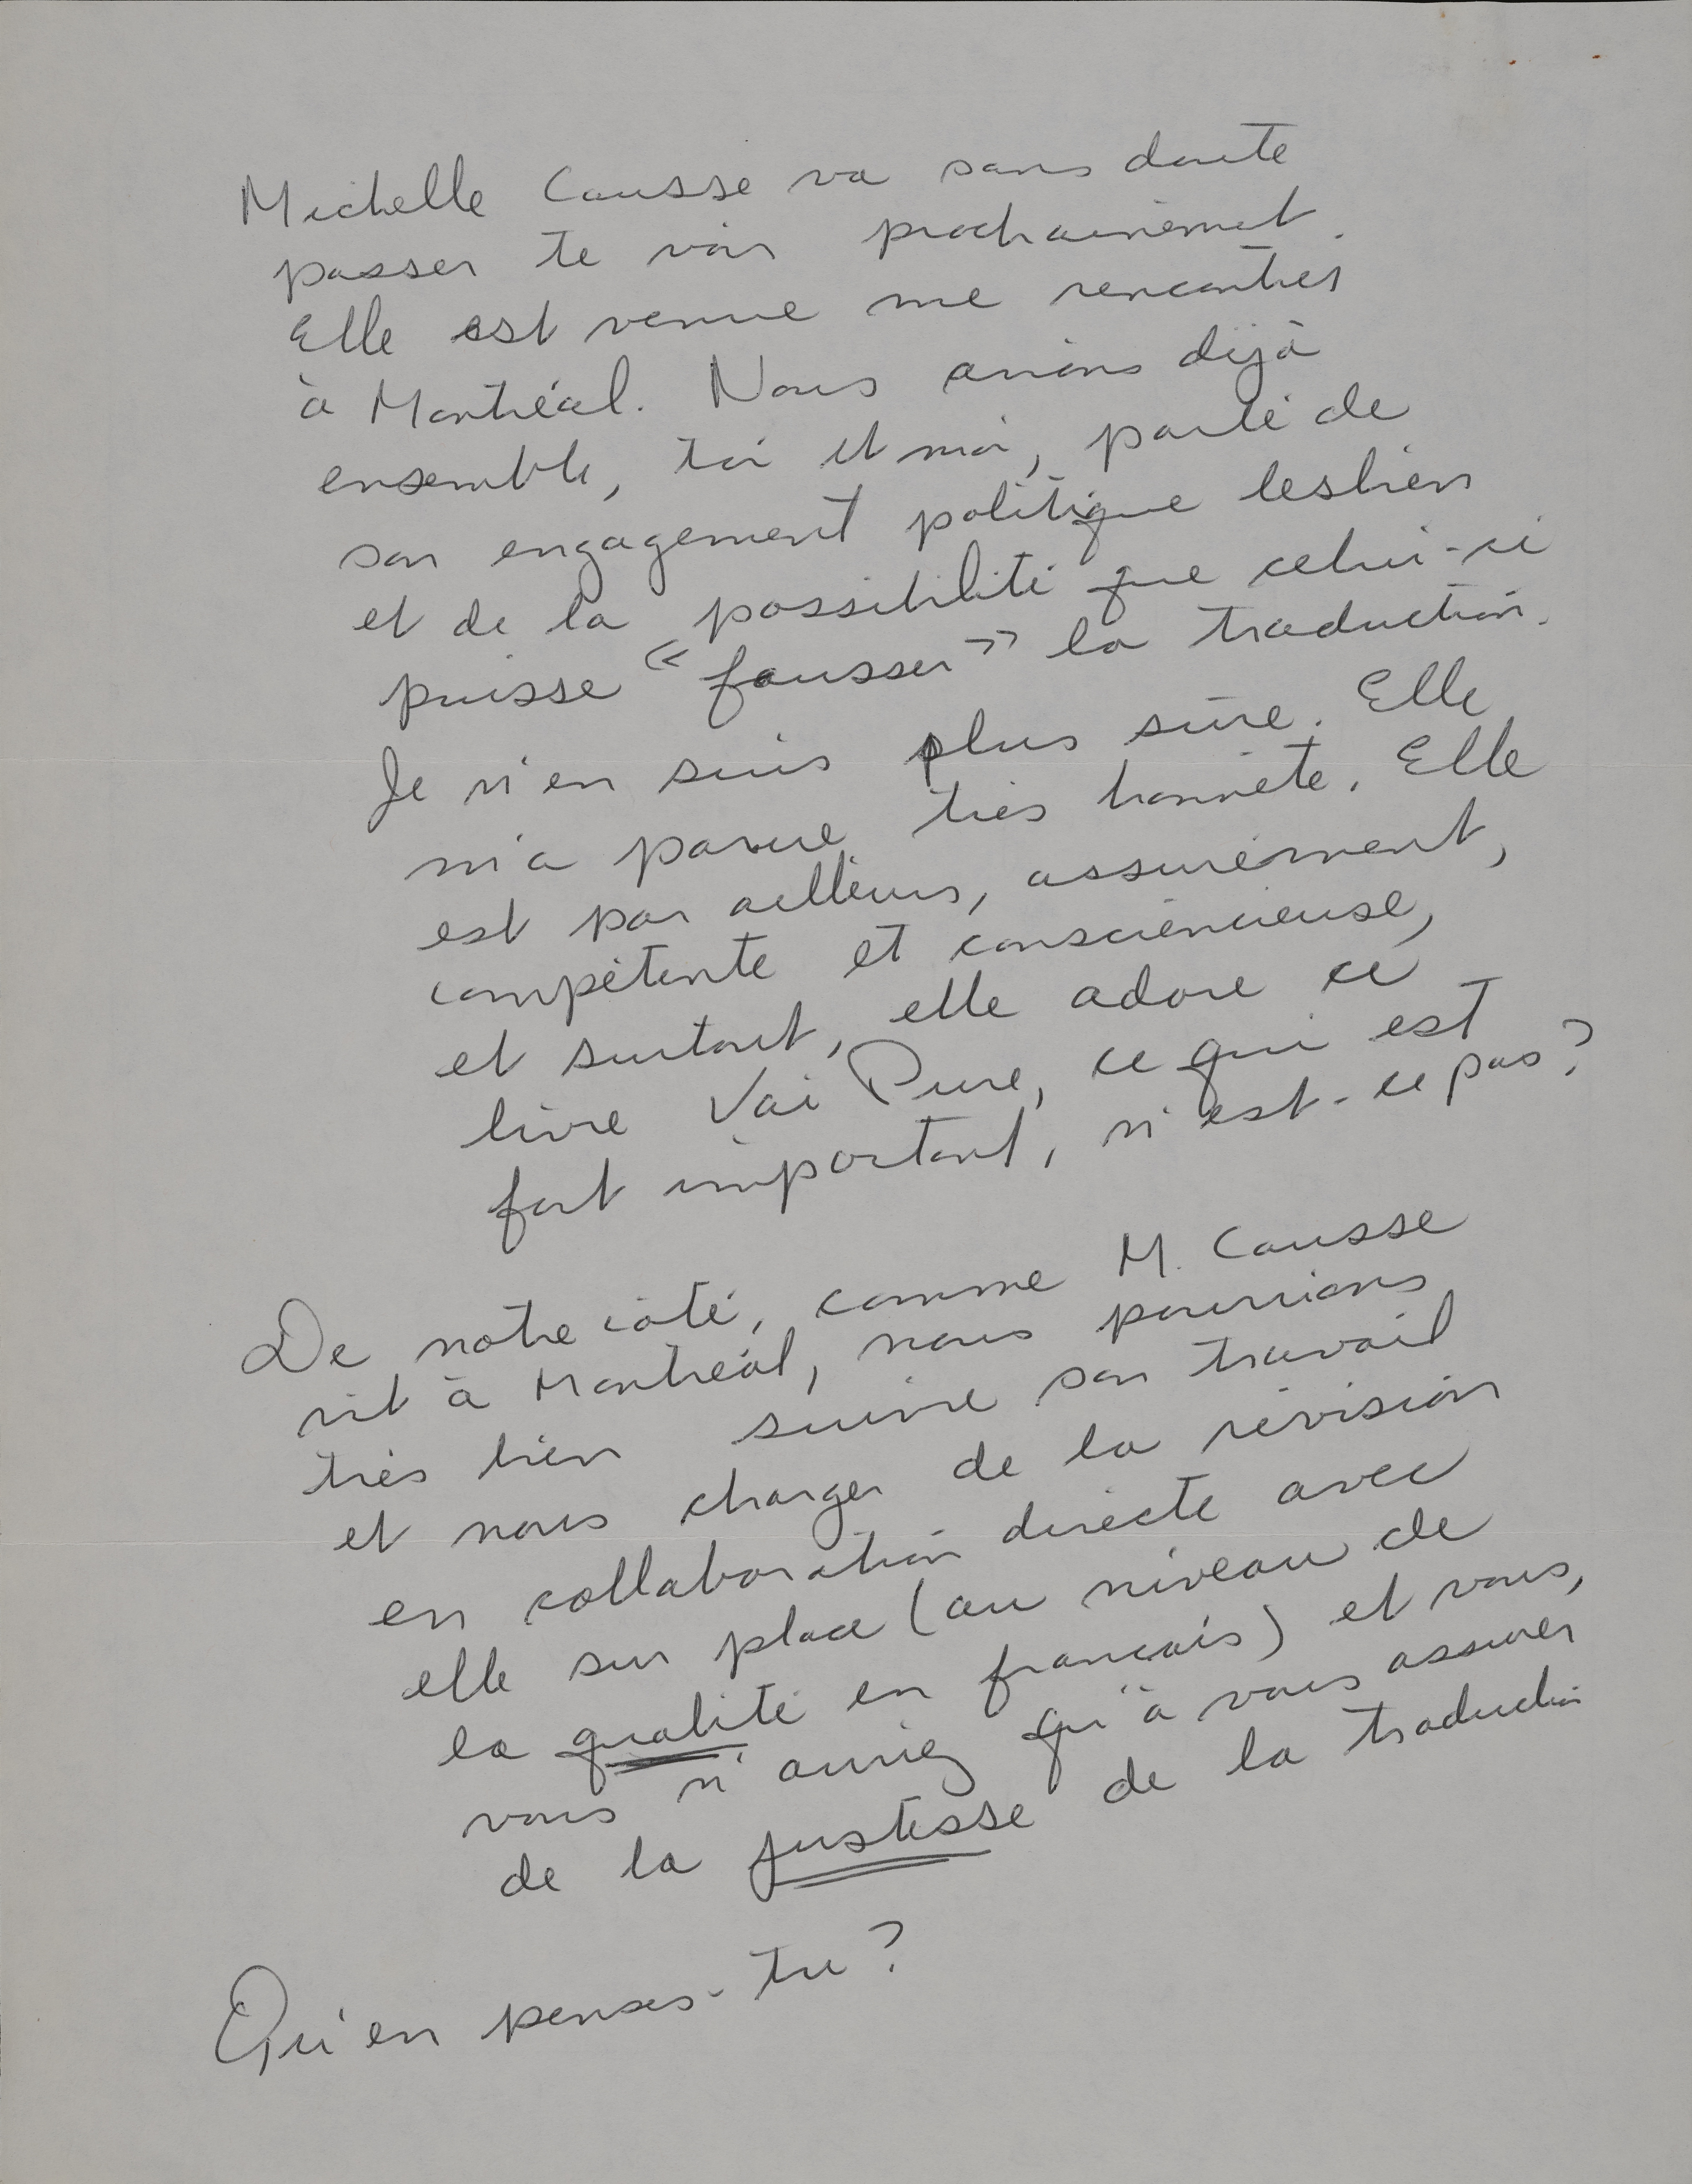 Michelle Causse va sans doute
passer te voir prochainement.
Elle est venue me rencontrer
à Montréal. Nous avions déjà
ensemble, toi et moi, parlé de
son engagement politique lesbien
et de la possibilité que celui-ci
puisse « fausser » la traduction.
Je n'en suis plus sûre. Elle
m'a parue très honnête. Elle
est par ailleurs, assurément,
compétente et consciencieuse,
et surtout, elle adore ce
livre Vai Pure, ce qui est
fort important, n'est-ce pas?
De notre côté, comme M. Causse
vit à Montréal, nous pourrions
très bien suivre son travail
et nous charger de la révision
en collaboration directe avec
elle sur place (au niveau de
la qualité en français) et vous,
vous n'auriez qu'à vous assurer
de la justesse de la traduction
Qu'en penses-tu?